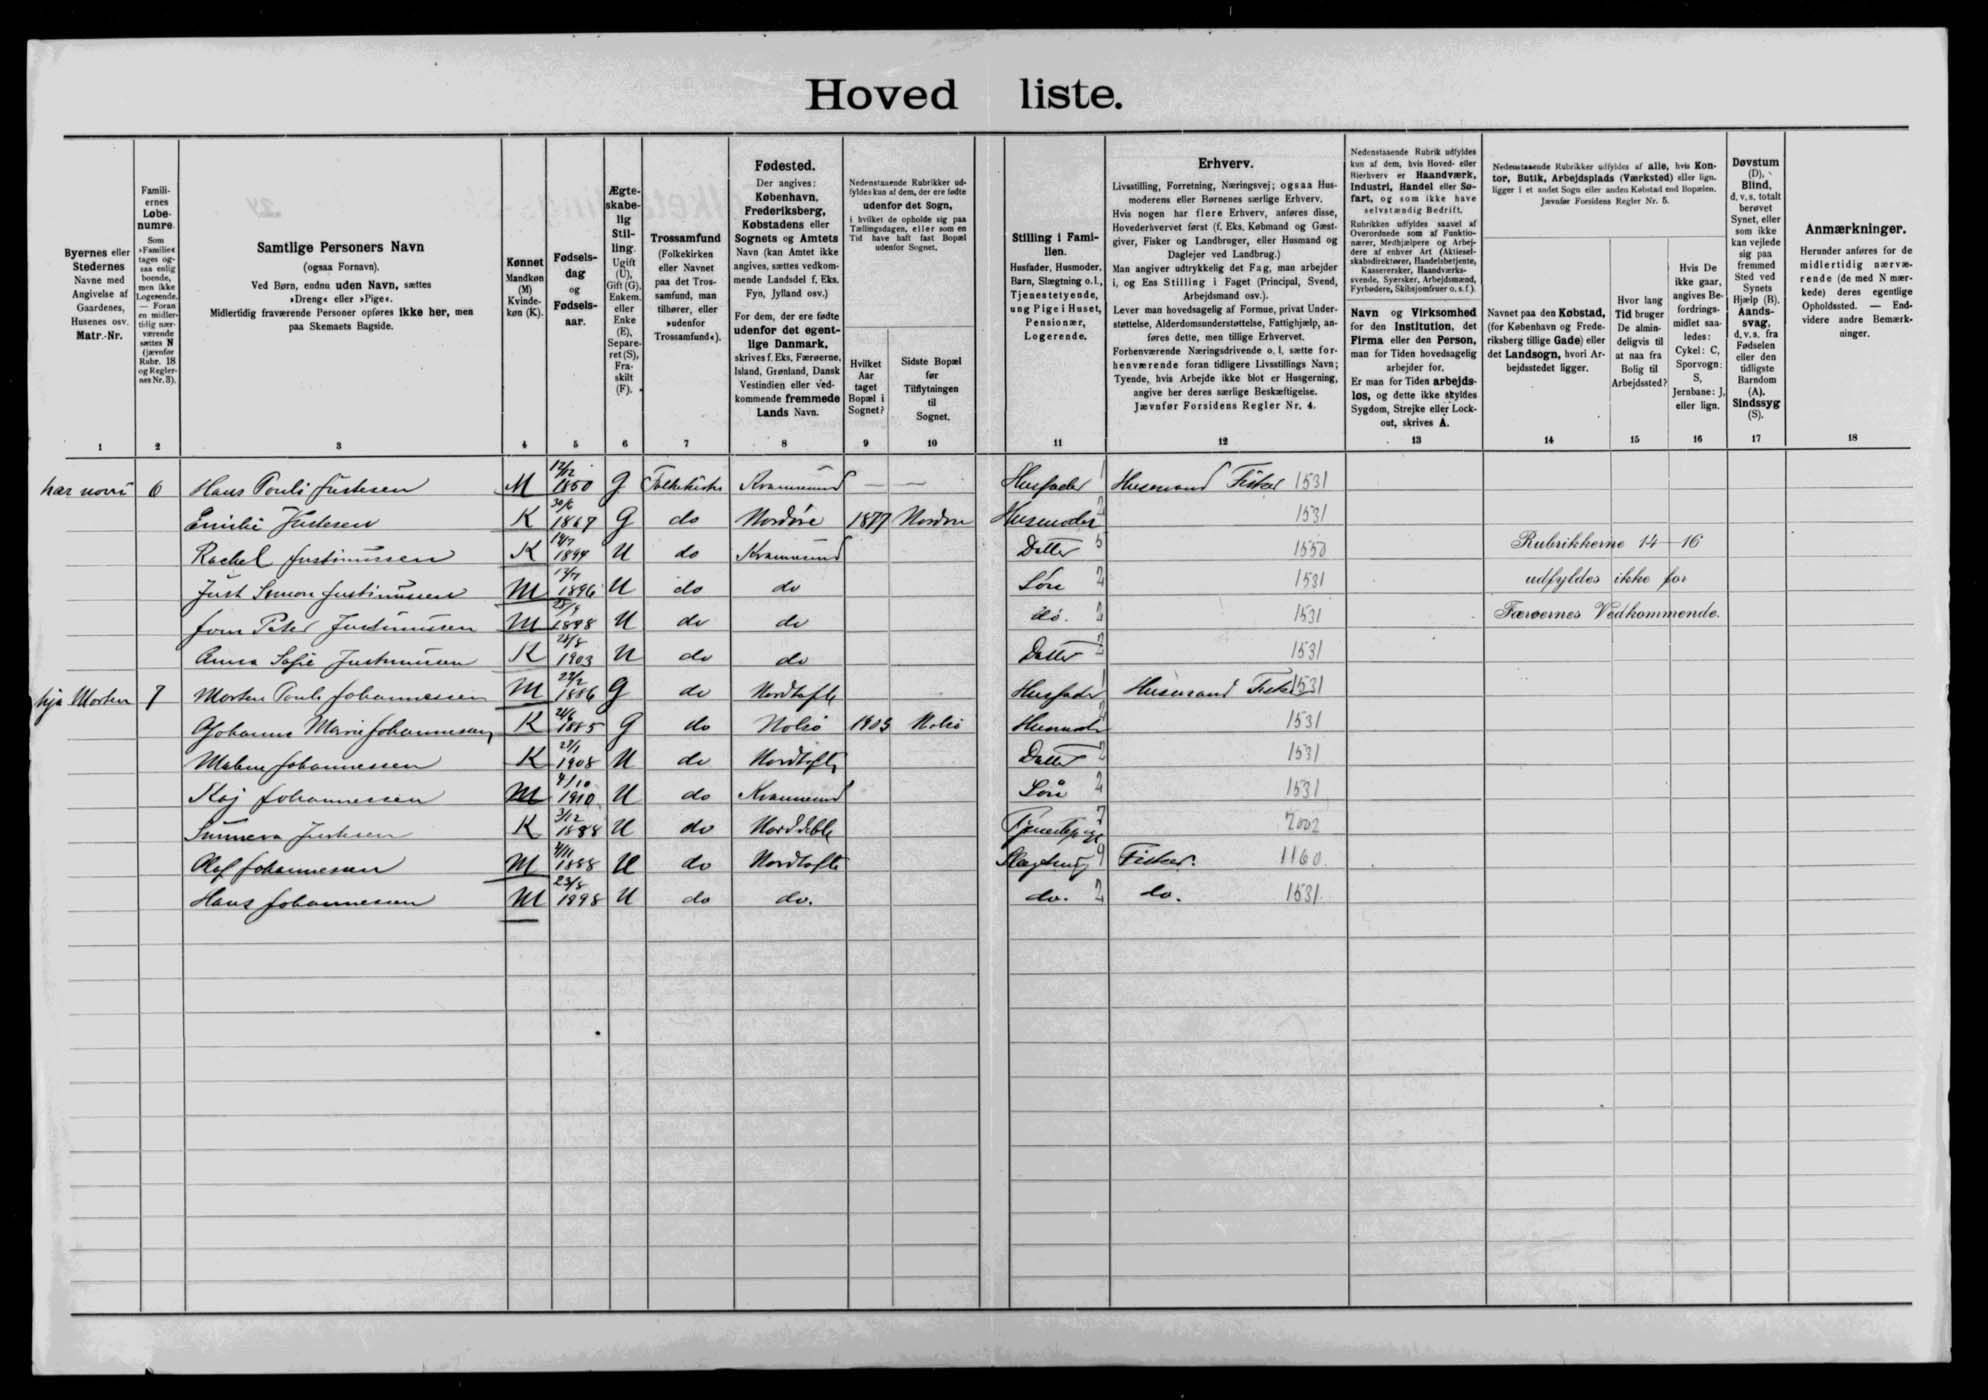 Hoved liste.
Byernes eller Stedernes Navne med Angivelse af Gaardenes, Husenes osv. Matr.-Nr.
Familiernes Løbenumre. Som »Familie« tages ogsaa enlig boende, men ikke Logerende. — Foran en midlertidig nærværende sættes N (jævnfør Rubr. 18 og Reglernes Nr. 3).
Samtlige Personers Navn (ogsaa Fornavn). Ved Børn, endnu uden Navn, sættes »Dreng« eller »Pige«. Midlertidig fraværende Personer opføres ikke her, men paa Skemaets Bagside.
Kønnet Mandkøn (M) Kvindekøn (K).
Fødselsdag og Fødselsaar.
Ægteskabelig Stilling. Ugift (U), Gift (G), Enkem. eller Enke (E), Separeret (S), Fraskilt (F).
Trossamfund (Folkekirken eller Navnet paa det Trossamfund, man tilhører, eller »udenfor Trossamfund«).
Fødested. Der angives: København, Frederiksberg, Købstadens eller Sognets og Amtets Navn (kan Amtet ikke angives, sættes vedkommende Landsdel f. Eks. Fyn, Jylland osv.) For dem, der ere fødte udenfor det egentlige Danmark, skrives f. Eks. Færøerne, Island, Grønland, Dansk Vestindien eller vedkommende fremmede Lands Navn.
Nedenstaaende Rubrikker udfyldes kun af dem, der ere fødte udenfor det Sogn, i hvilket de opholde sig paa Tællingsdagen, eller som en Tid have haft fast Bopæl udenfor Sognet.
Hvilket Aar taget Bopæl i Sognet?
Sidste Bopæl før Tilflytningen til Sognet.
Stilling i Familien. Husfader, Husmoder, Barn, Slægtning o.l., Tjenestetyende, ung Pige i Huset, Pensionær, Logerende.
Erhverv. Livsstilling, Forretning, Næringsvej; ogsaa Husmoderens eller Børnenes særlige Erhverv. Hvis nogen har flere Erhverv, anføres disse, Hovederhvervet først (f. Eks. Købmand og Gæstgiver, Fisker og Landbruger, eller Husmand og Daglejer ved Landbrug.) Man angiver udtrykkelig det Fag, man arbejder i, og Ens Stilling i Faget (Principal, Svend, Arbejdsmand osv.). Lever man hovedsagelig af Formue, privat Understøttelse, Alderdomsunderstøttelse, Fattighjælp, anføres dette, men tillige Erhvervet. Forhenværende Næringsdrivende o. l. sætte forhenværende foran tidligere Livsstillings Navn; Tyende, hvis Arbejde ikke blot er Husgerning, angive her deres særlige Beskæftigelse. Jævnfør Forsidens Regler Nr. 4.
Nedenstaaende Rubrik udfyldes kun af dem, hvis Hoved- eller Bierhverv er Haandværk, Industri, Handel eller Søfart, og som ikke have selvstændig Bedrift. Rubrikken udfyldes saavel af Overordnede som af Funktionærer, Medhjælpere og Arbejdere af enhver Art (Aktieselskabsdirektører, Handelsbetjente, Kasserersker, Haandværkssvende, Syersker, Arbejdsmænd, Fyrbødere, Skibsjomfruer o. s. f.).
Navn og Virksomhed for den Institution, det Firma eller den Person, man for Tiden hovedsagelig arbejder for. Er man for Tiden arbejdsløs, og dette ikke skyldes Sygdom, Strejke eller Lockout, skrives A.
Nedenstaaende Rubrikker udfyldes af alle, hvis Kontor, Butik, Arbejdsplads (Værksted) eller lign. ligger i et andet Sogn eller anden Købstad end Bopælen. Jævnfør Forsidens Regler Nr. 5.
Navnet paa den Købstad, (for København og Frederiksberg tillige Gade) eller det Landsogn, hvori Arbejdsstedet ligger.
Hvor lang Tid bruger De almindeligvis til at naa fra Bolig til Arbejdssted?
Hvis De ikke gaar, angives Befordringsmidlet saaledes: Cykel: C, Sporvogn: S, Jernbane: J, eller lign.
Døvstum (D), Blind, d. v. s. totalt berøvet Synet, eller som ikke kan vejlede sig paa fremmed Sted ved Synets Hjælp (B). Aandssvag, d. v. s. fra Fødselen eller den tidligste Barndom (A). Sindssyg (S).
Anmærkninger. Herunder anføres for de midlertidig nærværende (de med N mærkede) deres egentlige Opholdssted. — Endvidere andre Bemærkninger.
1 2 3 4 5 6 7 8 9 10 11 12 13 14 15 16 17 18
har norri 6 Hans Pouli Justesen M 12/12 1850 G Folkekirke Kvannesund — — Husfader 1 Husmand Fisker 1531
Emilie Justesen K 30/6 G do Nordöre 1877 Husmoder 2 1531
Rachel Justinussen K 1894 U do Kvannesund Datter 5 1550 Rubrikkerne 14—16
Just Simon Justinussen M 1896 U do do Sön 2 1531 udfyldes ikke for
Peter Justinussen M 1898 U do do do. 2 1531 Færøernes Vedkommende.
Anna Sofie Justinussen K 1903 U do do Datter 2 1531
hja Morten 7 Morten Pouli Johannessen M 22/2 1886 G do Nordtofte Husfader 1 Husmand Fisker 1531
Johanne Marie Johannesen K 1885 G do 1903 Husmoder 2 1531
Malene Johannessen K 27/1 1908 U do Nordtofte Datter 2 1531
Kaj Johannessen M 4/10 1910 U do Kvannesund Sön 2 1531
Sunneva Justesen K 3/12 1888 U do Norddeble Tjenestepige 7 7002
Olaf Johannesen M 4/11 1888 U do Nordtofte Slægtning 9 Fisker. 1160.
Hans Johannesen M 23/8 1898 U do do. do. 2 do. 1531.